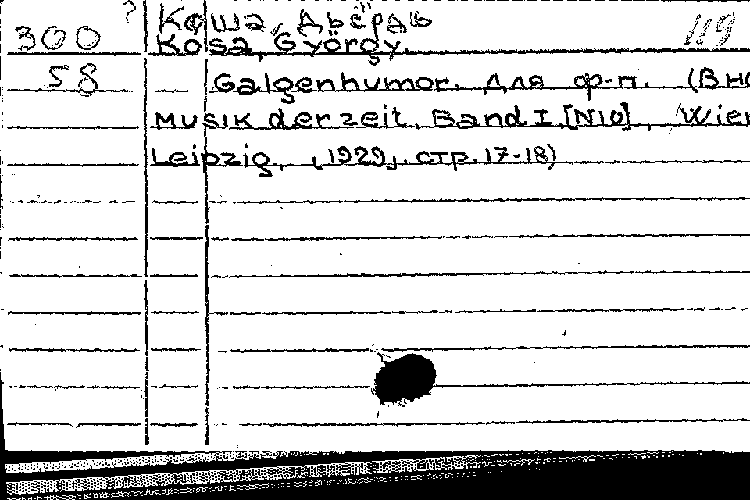 ?
Коша, Дьёрдь
300 Kosa, György. 119
58 Galgenhumor. Для ф-п. (В но
Musik der zeit, Band I [N10], Wien
Leipzig, [1929], стр. 17-18)